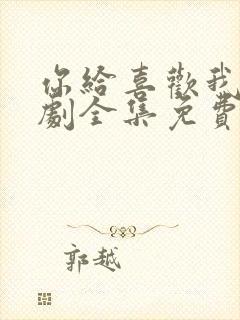 你給喜歡我
劇全集免費
郭越